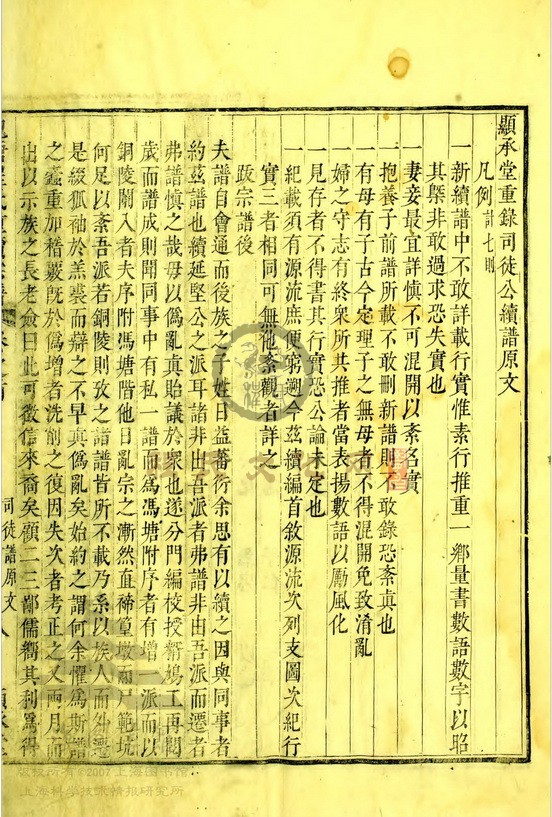 顯承堂重錄司徒公續譜原文
凡例計七則
一新續譜中不敢詳載行實惟素行推重一鄉量書數語數字以昭
其槩非敢過求恐失實也
一妻妾最宜詳慎不可混開以紊名實
抱養子前譜所載不敢刪新譜則不敢錄恐紊真也
一有母有子古今定理子之無母者不得混開免致淆亂
婦之守志有終衆所共推者當表揚數語以勵風化
一見存者不得書其行實恐公論未定也
一紀載須有源流庶不窮遡今茲續編首敘源流次列支圖次紀行
實三者相同可無他紊觀者詳之
跋宗譜後
夫譜自會通而後族之子姓日益蕃衍余思有以續之因與同事者
約茲譜也續延堅公之派耳諸非出吾派者弗譜非由吾派而遷者
弗譜慎之哉毋以僞亂真貽議於衆也遂分門編校授
工再閱
歲而譜成則聞同事中有私一譜而爲馮塘附序者有增一派而以
銅陵闌入者夫序附馮塘階他日亂宗之漸然直
墩
範坑
何足以紊吾派若銅陵則攷之譜譜皆所不載乃系以族人而外遷
是綴狐袖於羔裘而辯之不早真僞亂矣始約之謂何余懼爲斯譜
之蠧重加稽覈旣於僞增者洗削之復因失次者考正之又兩月而
出以示族之長老僉曰此可徵信來裔矣顧二三鄙儒嚮其利爲得
司徒譜原文
八
版權所有©2007上海图书馆
上海科学技术情报研究所